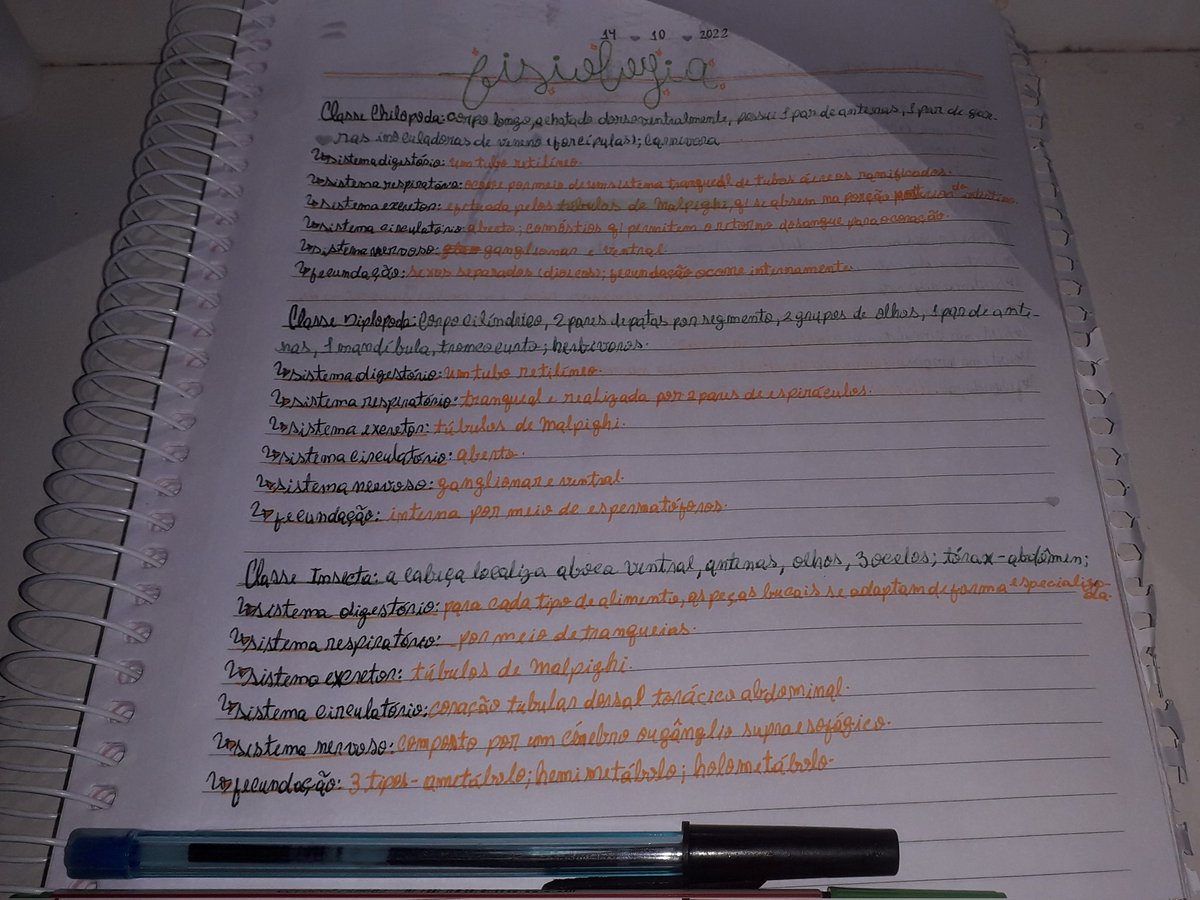 14 10 2022
fisiologia
Classe Chilopoda: corpo longo, achatado dorsoventralmente, possui 1 par de antenas, 1 par de gar-
ras inoculadoras de veneno (forcípulas); carnívora
sistema digestório: um tubo retilíneo.
sistema respiratório: ocorre por meio de um sistema traqueal de tubos aéreos ramificados.
sistema excretor: efetuada pelos túbulos de Malpighi, q se abrem na porção do intestino.
sistema circulatório: aberto; com óstios q permitem o retorno do sangue para o coração.
sistema nervoso: ganglionar e ventral
fecundação: sexos separados (dioicos); fecundação ocorre internamente.
Classe Diplopoda: Corpo cilíndrico, 2 pares de patas por segmento, 2 grupos de olhos, 1 par de ante-
nas, 1 mandíbula, tronco curto; herbívoros.
sistema digestório: um tubo retilíneo.
sistema respiratório: tranqueal e realizada por 2 pares de espiráculos.
sistema excretor: túbulos de Malpighi.
sistema circulatório: aberto.
sistema nervoso: ganglionar e ventral.
fecundação: interna por meio de espermatóforos.
Classe Insecta: a cabeça localiza a boca ventral, antenas, olhos, 3 ocelos; tórax-abdômen;
sistema digestório: para cada tipo de alimento, as peças bucais se adaptam de forma especializada.
sistema respiratório: por meio de tranqueias.
sistema excretor: túbulos de Malpighi.
sistema circulatório: coração tubular dorsal torácico abdominal.
sistema nervoso: composto por um cérebro ou gânglio supraesofágico.
fecundação: 3 tipos - ametábolo; hemimetábolo; holometábolo.